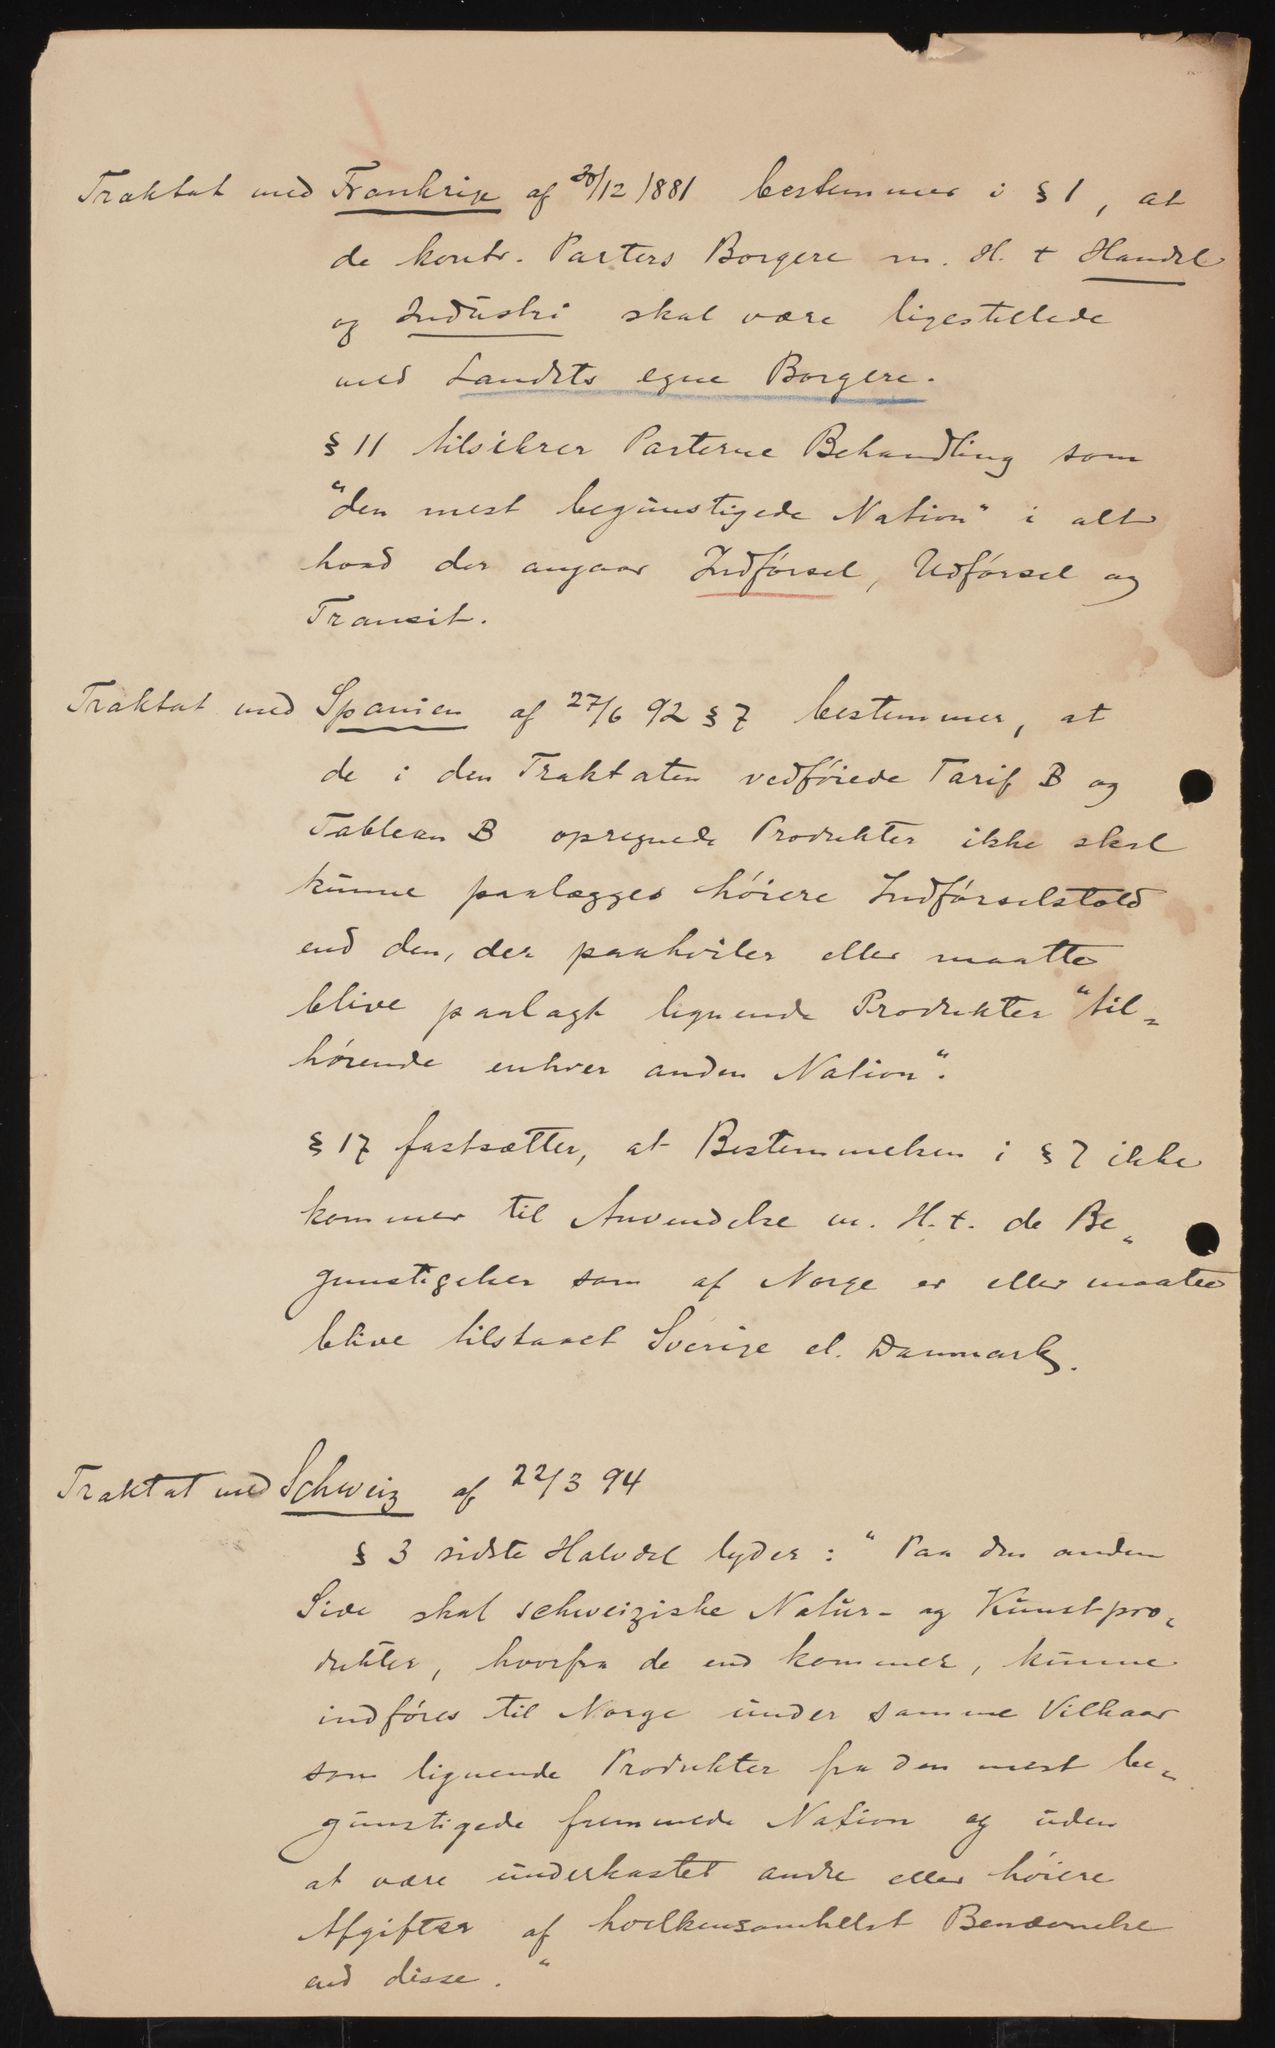 Traktat med Frankrige af 30/12 1881 bestemmer i § 1, at
de kontr. Parters Borgere m. H. t Handel
og Industri skal være ligestillede
med Landets egne Borgere.
§ 11 tilsikrer Parterne Behandling som
"den mest begunstigede Nation" i alt
hvad der angaar Indførsel, Udførsel og
Transit.
Traktat med Spanien af 27/6 92 § 7 bestemmer, at
de i den Traktaten vedføiede Tarif B og
Tableau B opregnede Produkter ikke skal
kunne paalægges høiere Indførselstold
end den, der paahviler eller maatte
blive paalagt lignende Produkter "til-
hørende enhver anden Nation".
§ 17 fastsætter, at Bestemmelsen i § 7 ikke
kommer til Anvendelse m. H. t. de Be-
gunstigelser som af Norge er eller maatte
blive tilstaaet Sverige el. Danmark.
Traktat med Schweiz af 22/3 94
§ 3 sidste Halvdel lyder: "Paa den anden
Side skal schweiziske Natur- og Kunstpro-
dukter, hvorfra de end kommer, kunne
indføres til Norge under samme Vilkaar
som lignende Produkter fra den mest be-
gunstigede fremmede Nation og uden
at være underkastet andre eller høiere
Afgifter af hvilkensomhelst Benævnelse
end disse."